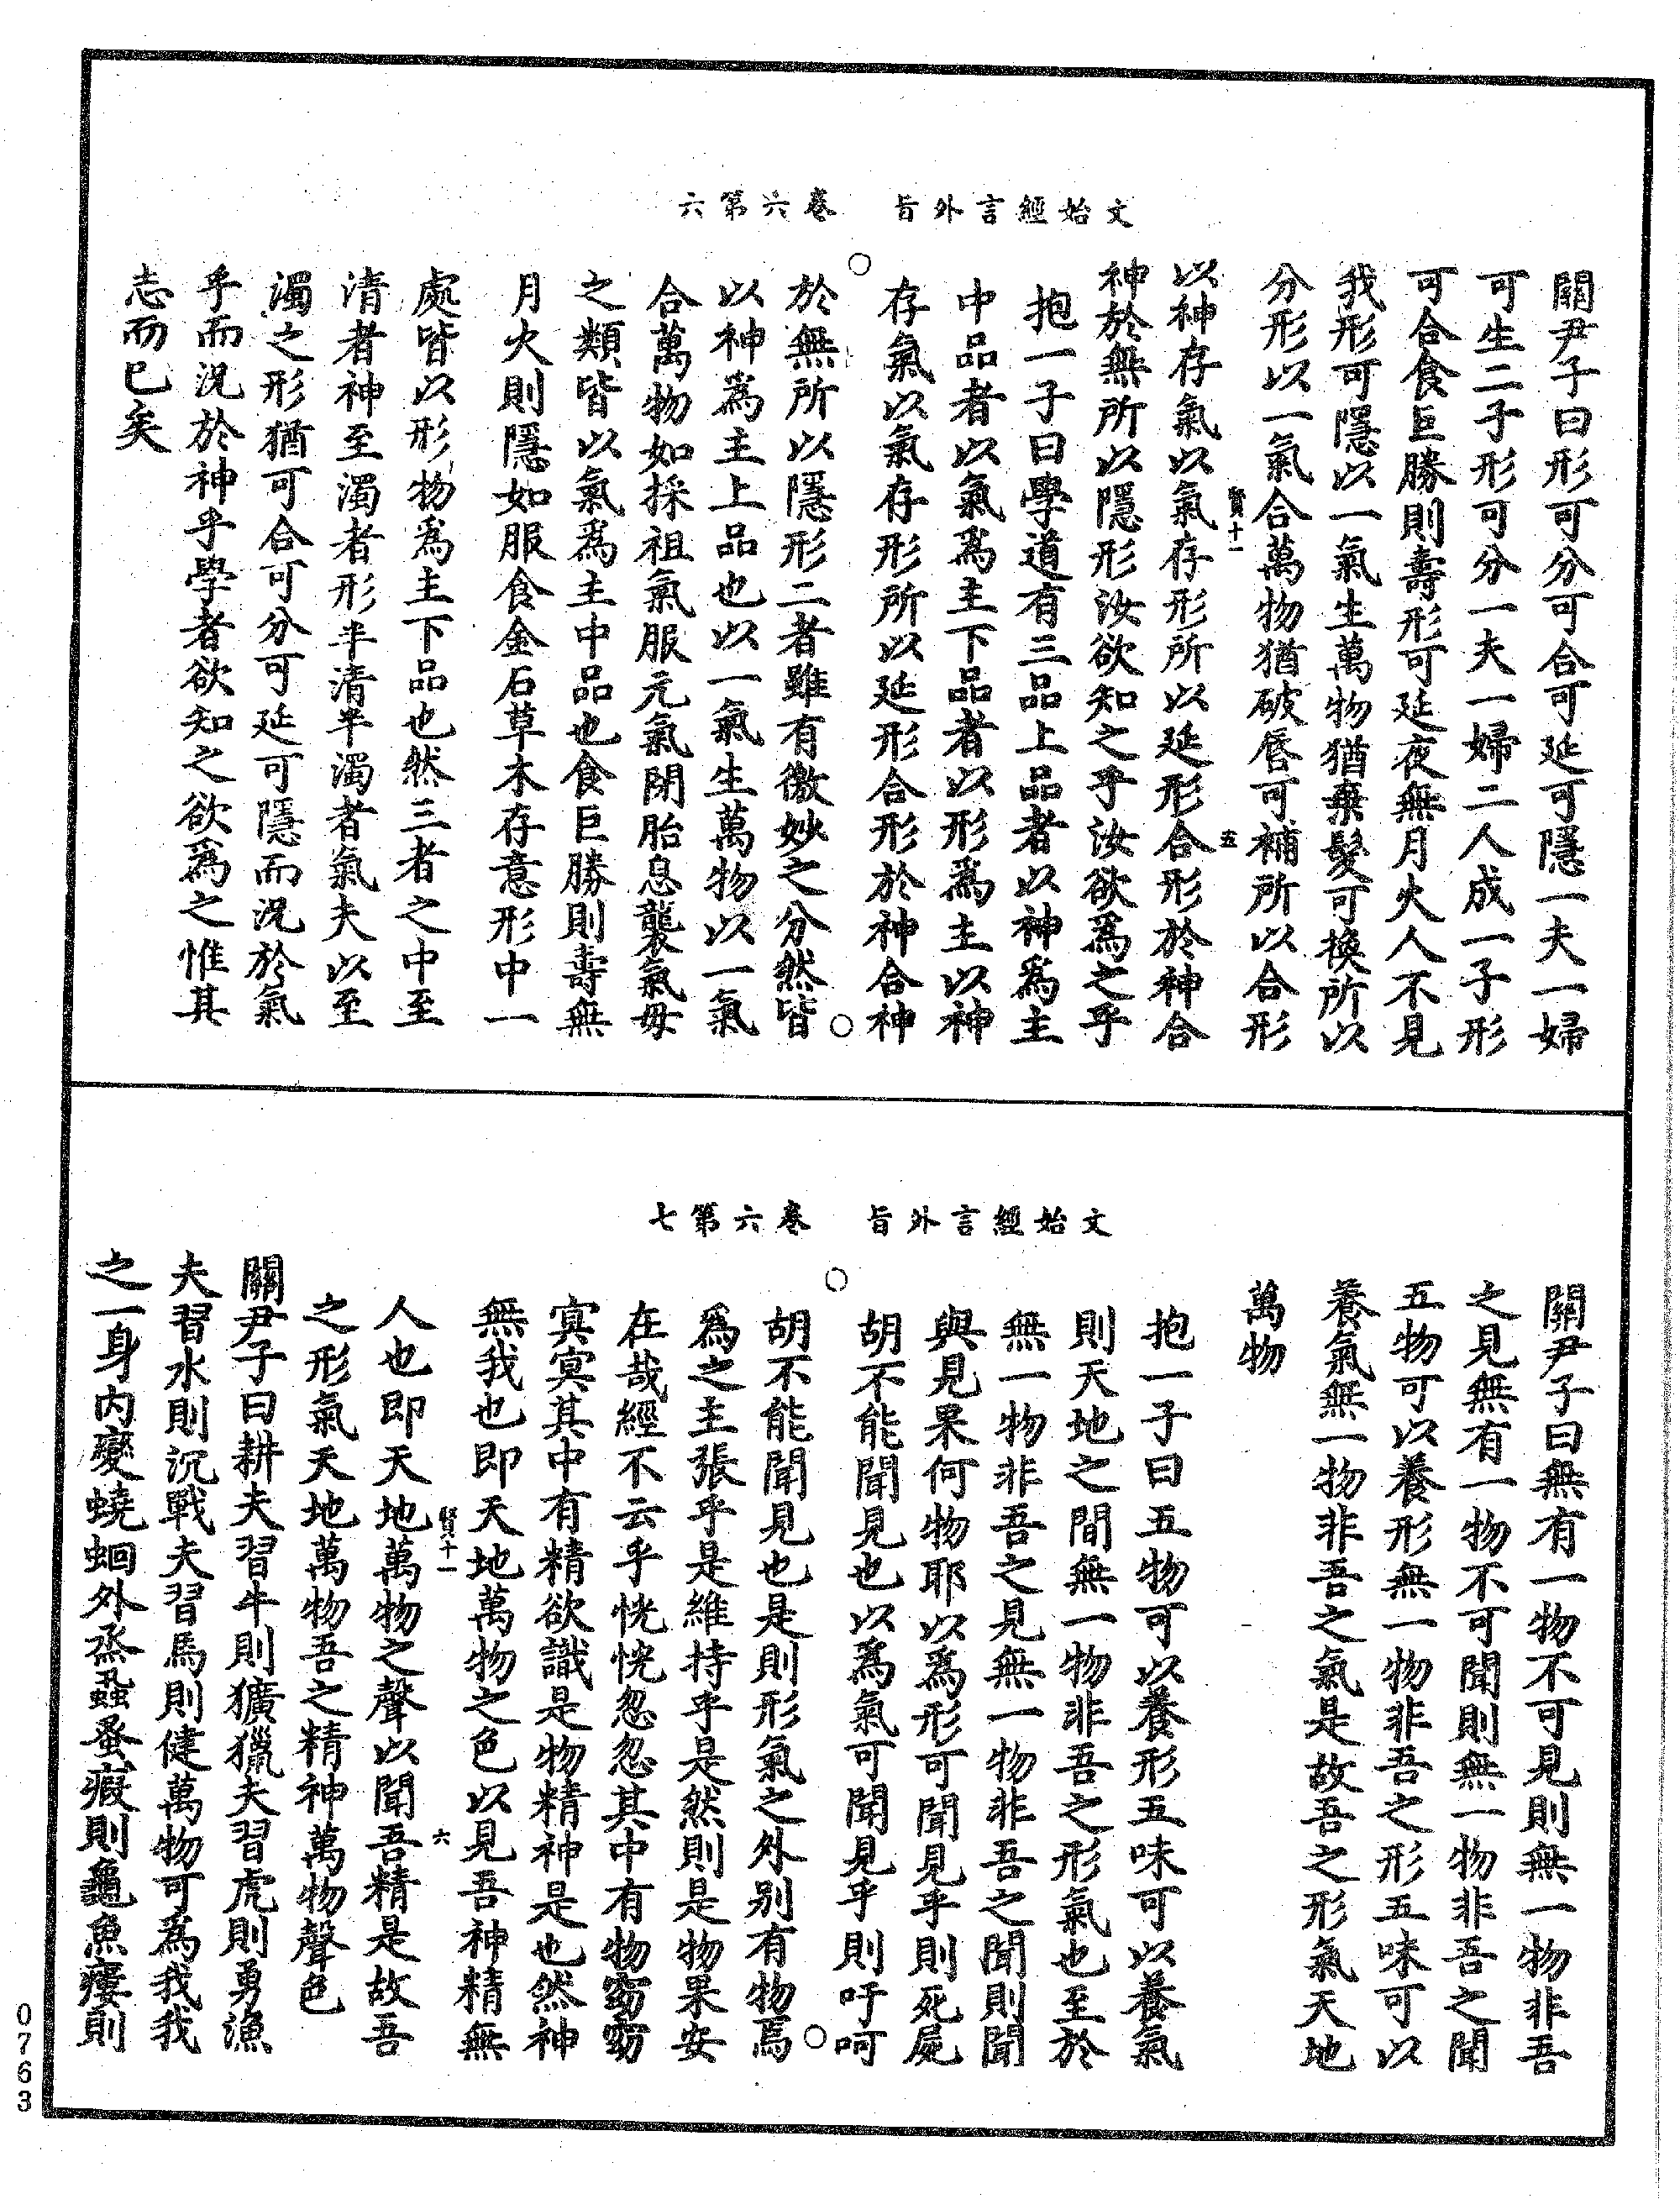 文始經言外旨　卷六第六
關尹子曰形可分可合可延可隱一夫一婦
可生二子形可分一夫一婦二人成一子形
可合食巨勝則壽形可延夜無月火人不見
我形可隱以一氣生萬物猶棄髮可換所以
分形以一氣合萬物猶破唇可補所以合形
賢十一　五
以神存氣以氣存形所以延形合形於神合
神於無所以隱形汝欲知之乎汝欲爲之乎
抱一子曰學道有三品上品者以神爲主
中品者以氣爲主下品者以形爲主以神
存氣以氣存形所以延形合形於神合神
於無所以隱形二者雖有徼妙之分然皆
以神爲主上品也以一氣生萬物以一氣
合萬物如採祖氣服元氣閉胎息襲氣母
之類皆以氣爲主中品也食巨勝則壽無
月火則隱如服食金石草木存意形中一
處皆以形物爲主下品也然三者之中至
清者神至濁者形半清半濁者氣夫以至
濁之形猶可合可分可延可隱而況於氣
乎而況於神乎學者欲知之欲爲之惟其
志而已矣
文始經言外旨　卷六第七
關尹子曰無有一物不可見則無一物非吾
之見無有一物不可聞則無一物非吾之聞
五物可以養形無一物非吾之形五味可以
養氣無一物非吾之氣是故吾之形氣天地
萬物
抱一子曰五物可以養形五味可以養氣
則天地之間無一物非吾之形氣也至於
無一物非吾之見無一物非吾之聞則聞
與見果何物耶以爲形可聞見乎則死屍
胡不能聞見也以爲氣可聞見乎則吁呵
胡不能聞見也是則形氣之外別有物焉
爲之主張乎是維持乎是然則是物果安
在哉經不云乎恍恍忽忽其中有物窈窈
冥冥其中有精欲識是物精神是也然神
無我也即天地萬物之色以見吾神精無
賢十一　六
人也即天地萬物之聲以聞吾精是故吾
之形氣天地萬物吾之精神萬物聲色
關尹子曰耕夫習牛則獷獵夫習虎則勇漁
夫習水則沉戰夫習馬則健萬物可爲我我
之一身內變蟯蛔外烝蝨蚤瘕則龜魚瘻則
0763